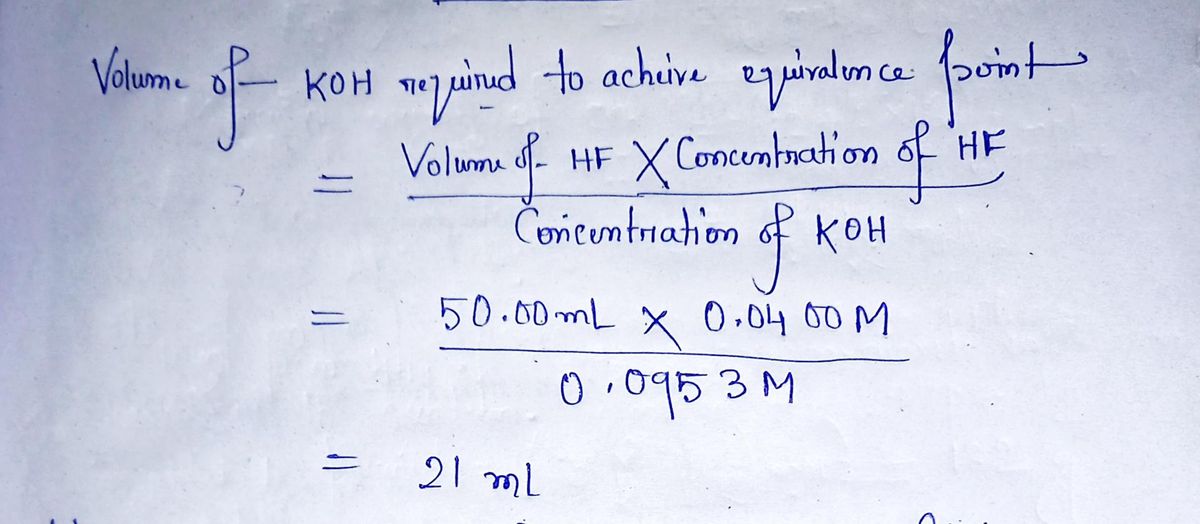 Volume of KOH required to acheive equivalence point
= Volume of HF X Concentration of HF
Concentration of KOH
= 50.00 mL x 0.0400 M
0.0953 M
= 21 mL